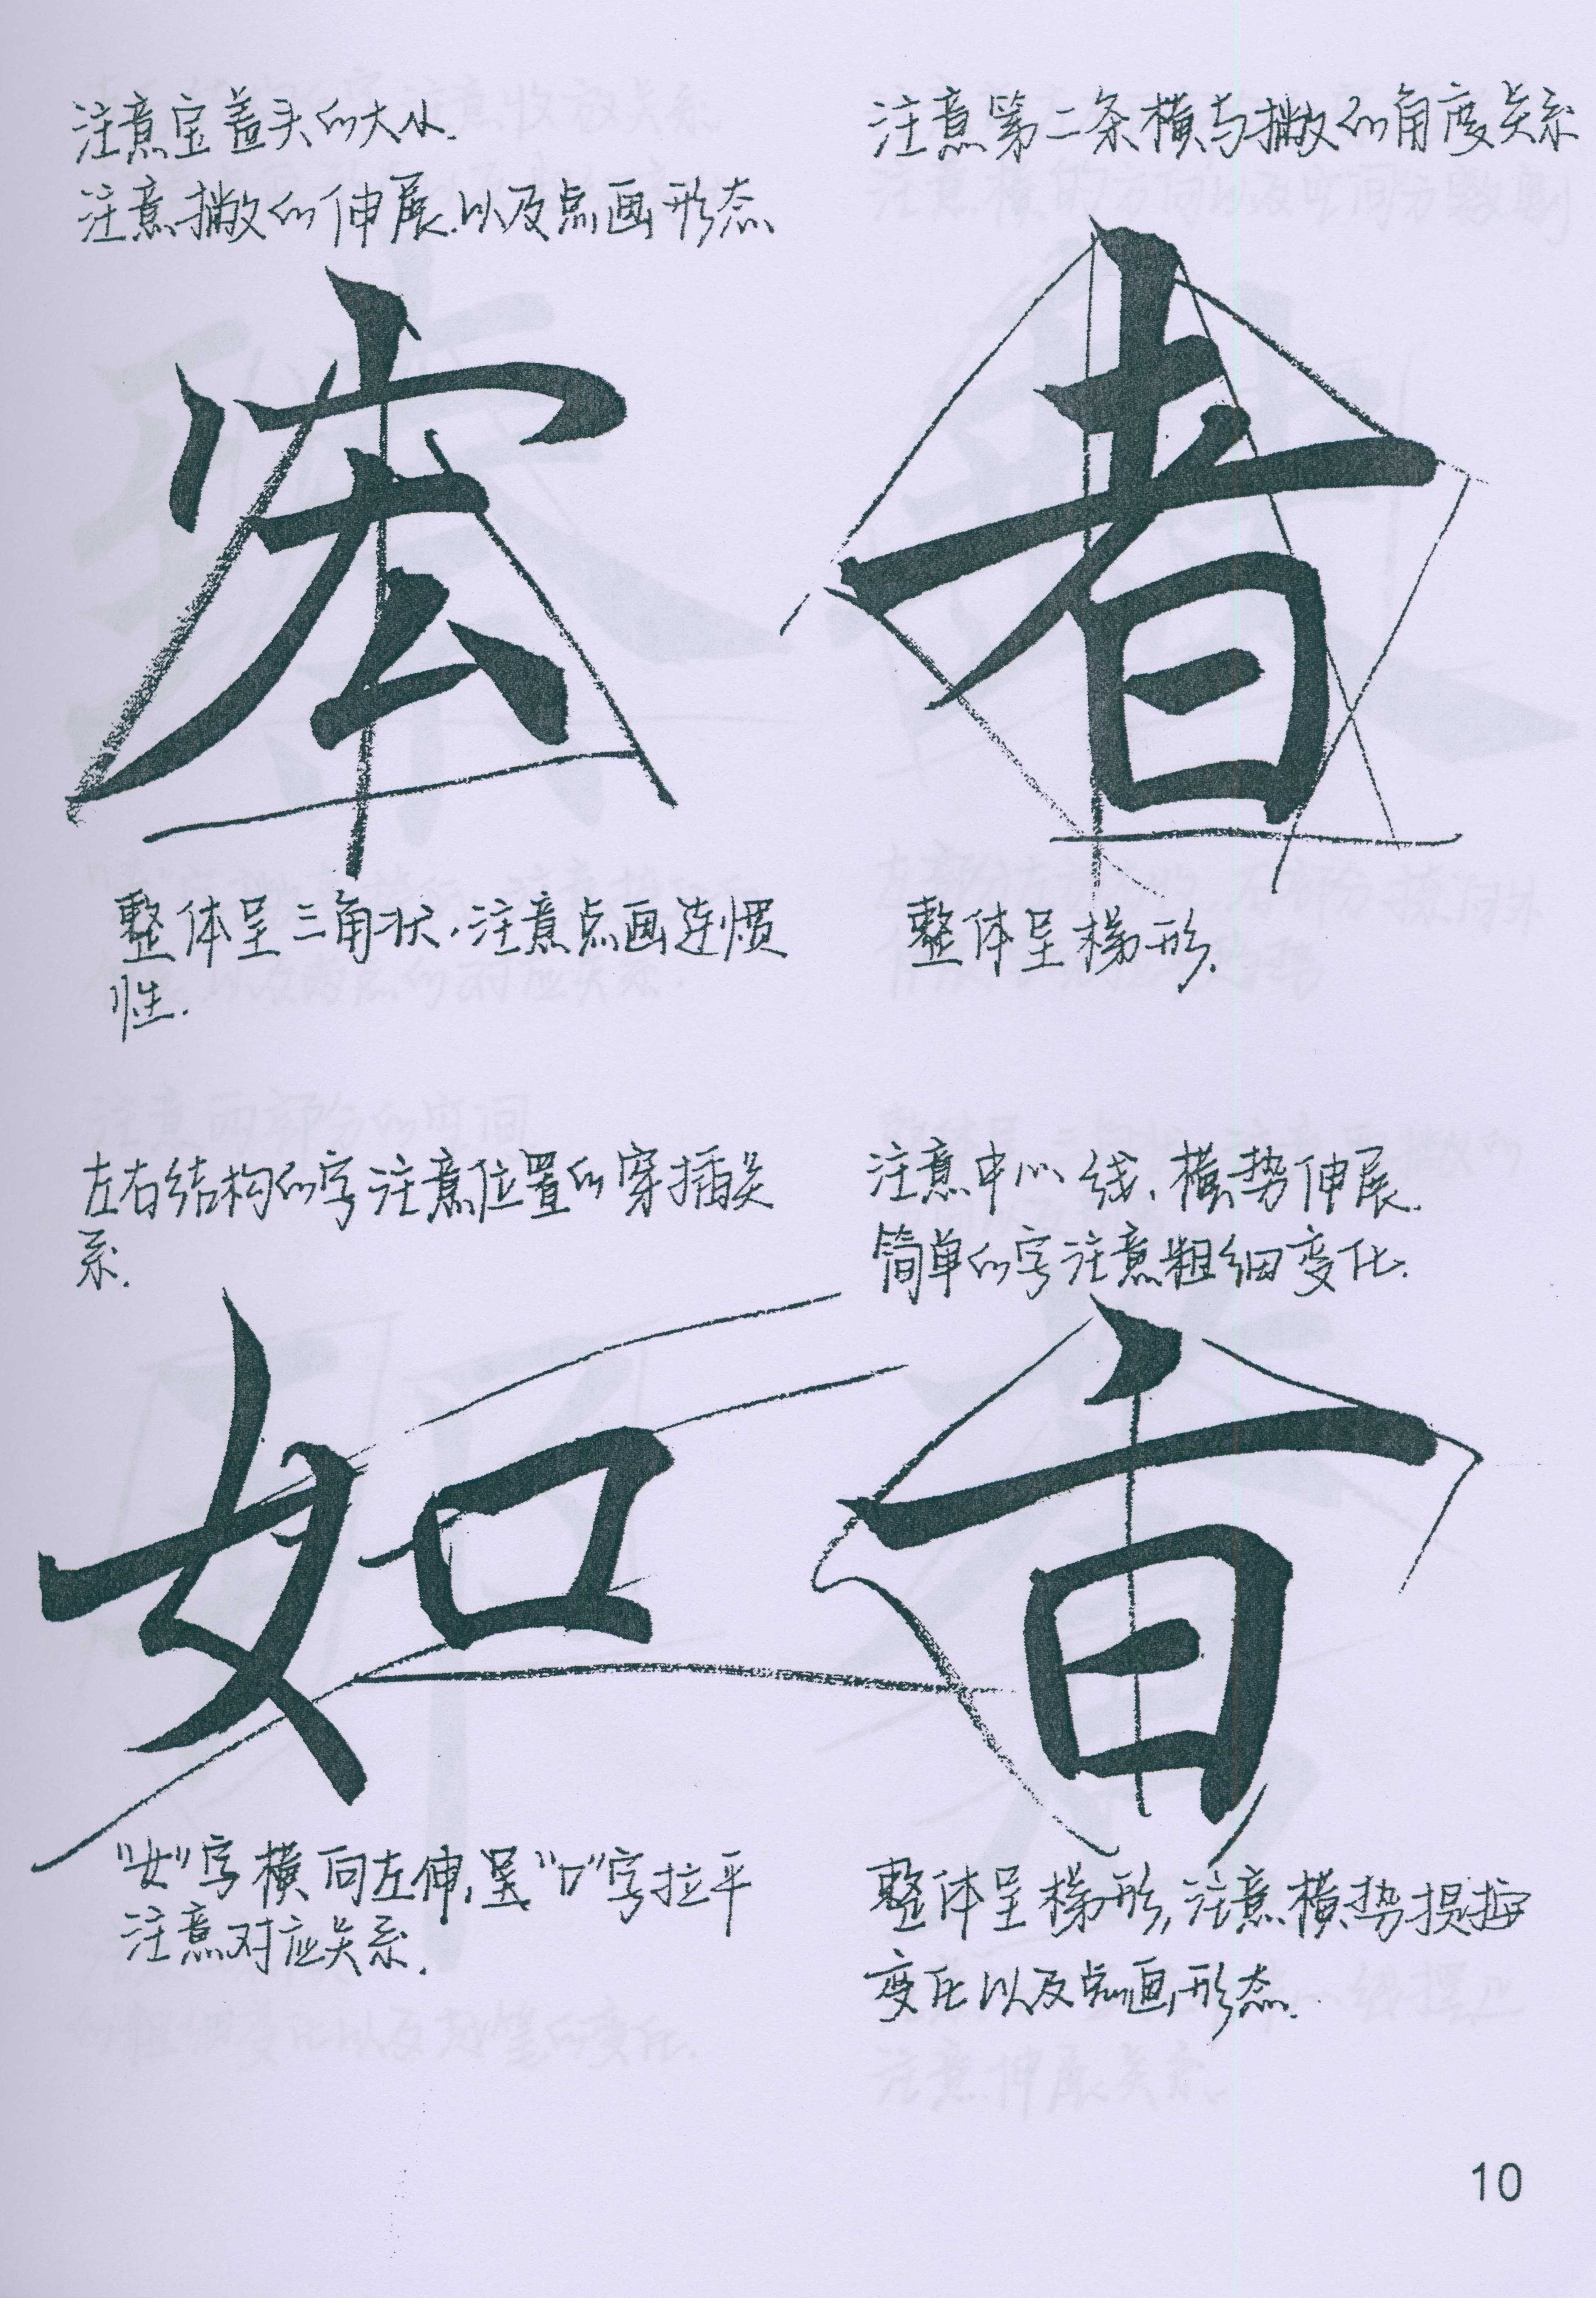 注意宝盖头的大小.
注意撇的伸展.以及点画形态
宏
整体呈三角状.注意点画连惯
性.
注意第二条横与撇的角度关系
者
整体呈梯形.
左右结构的字注意位置的穿插关
系.
如
"女"字横向左伸,呈"口"字拉平
注意对应关系.
注意中心线.横势伸展.
简单的字注意粗细变化.
整体呈梯形,注意横势提按
变化以及点画形态.
10